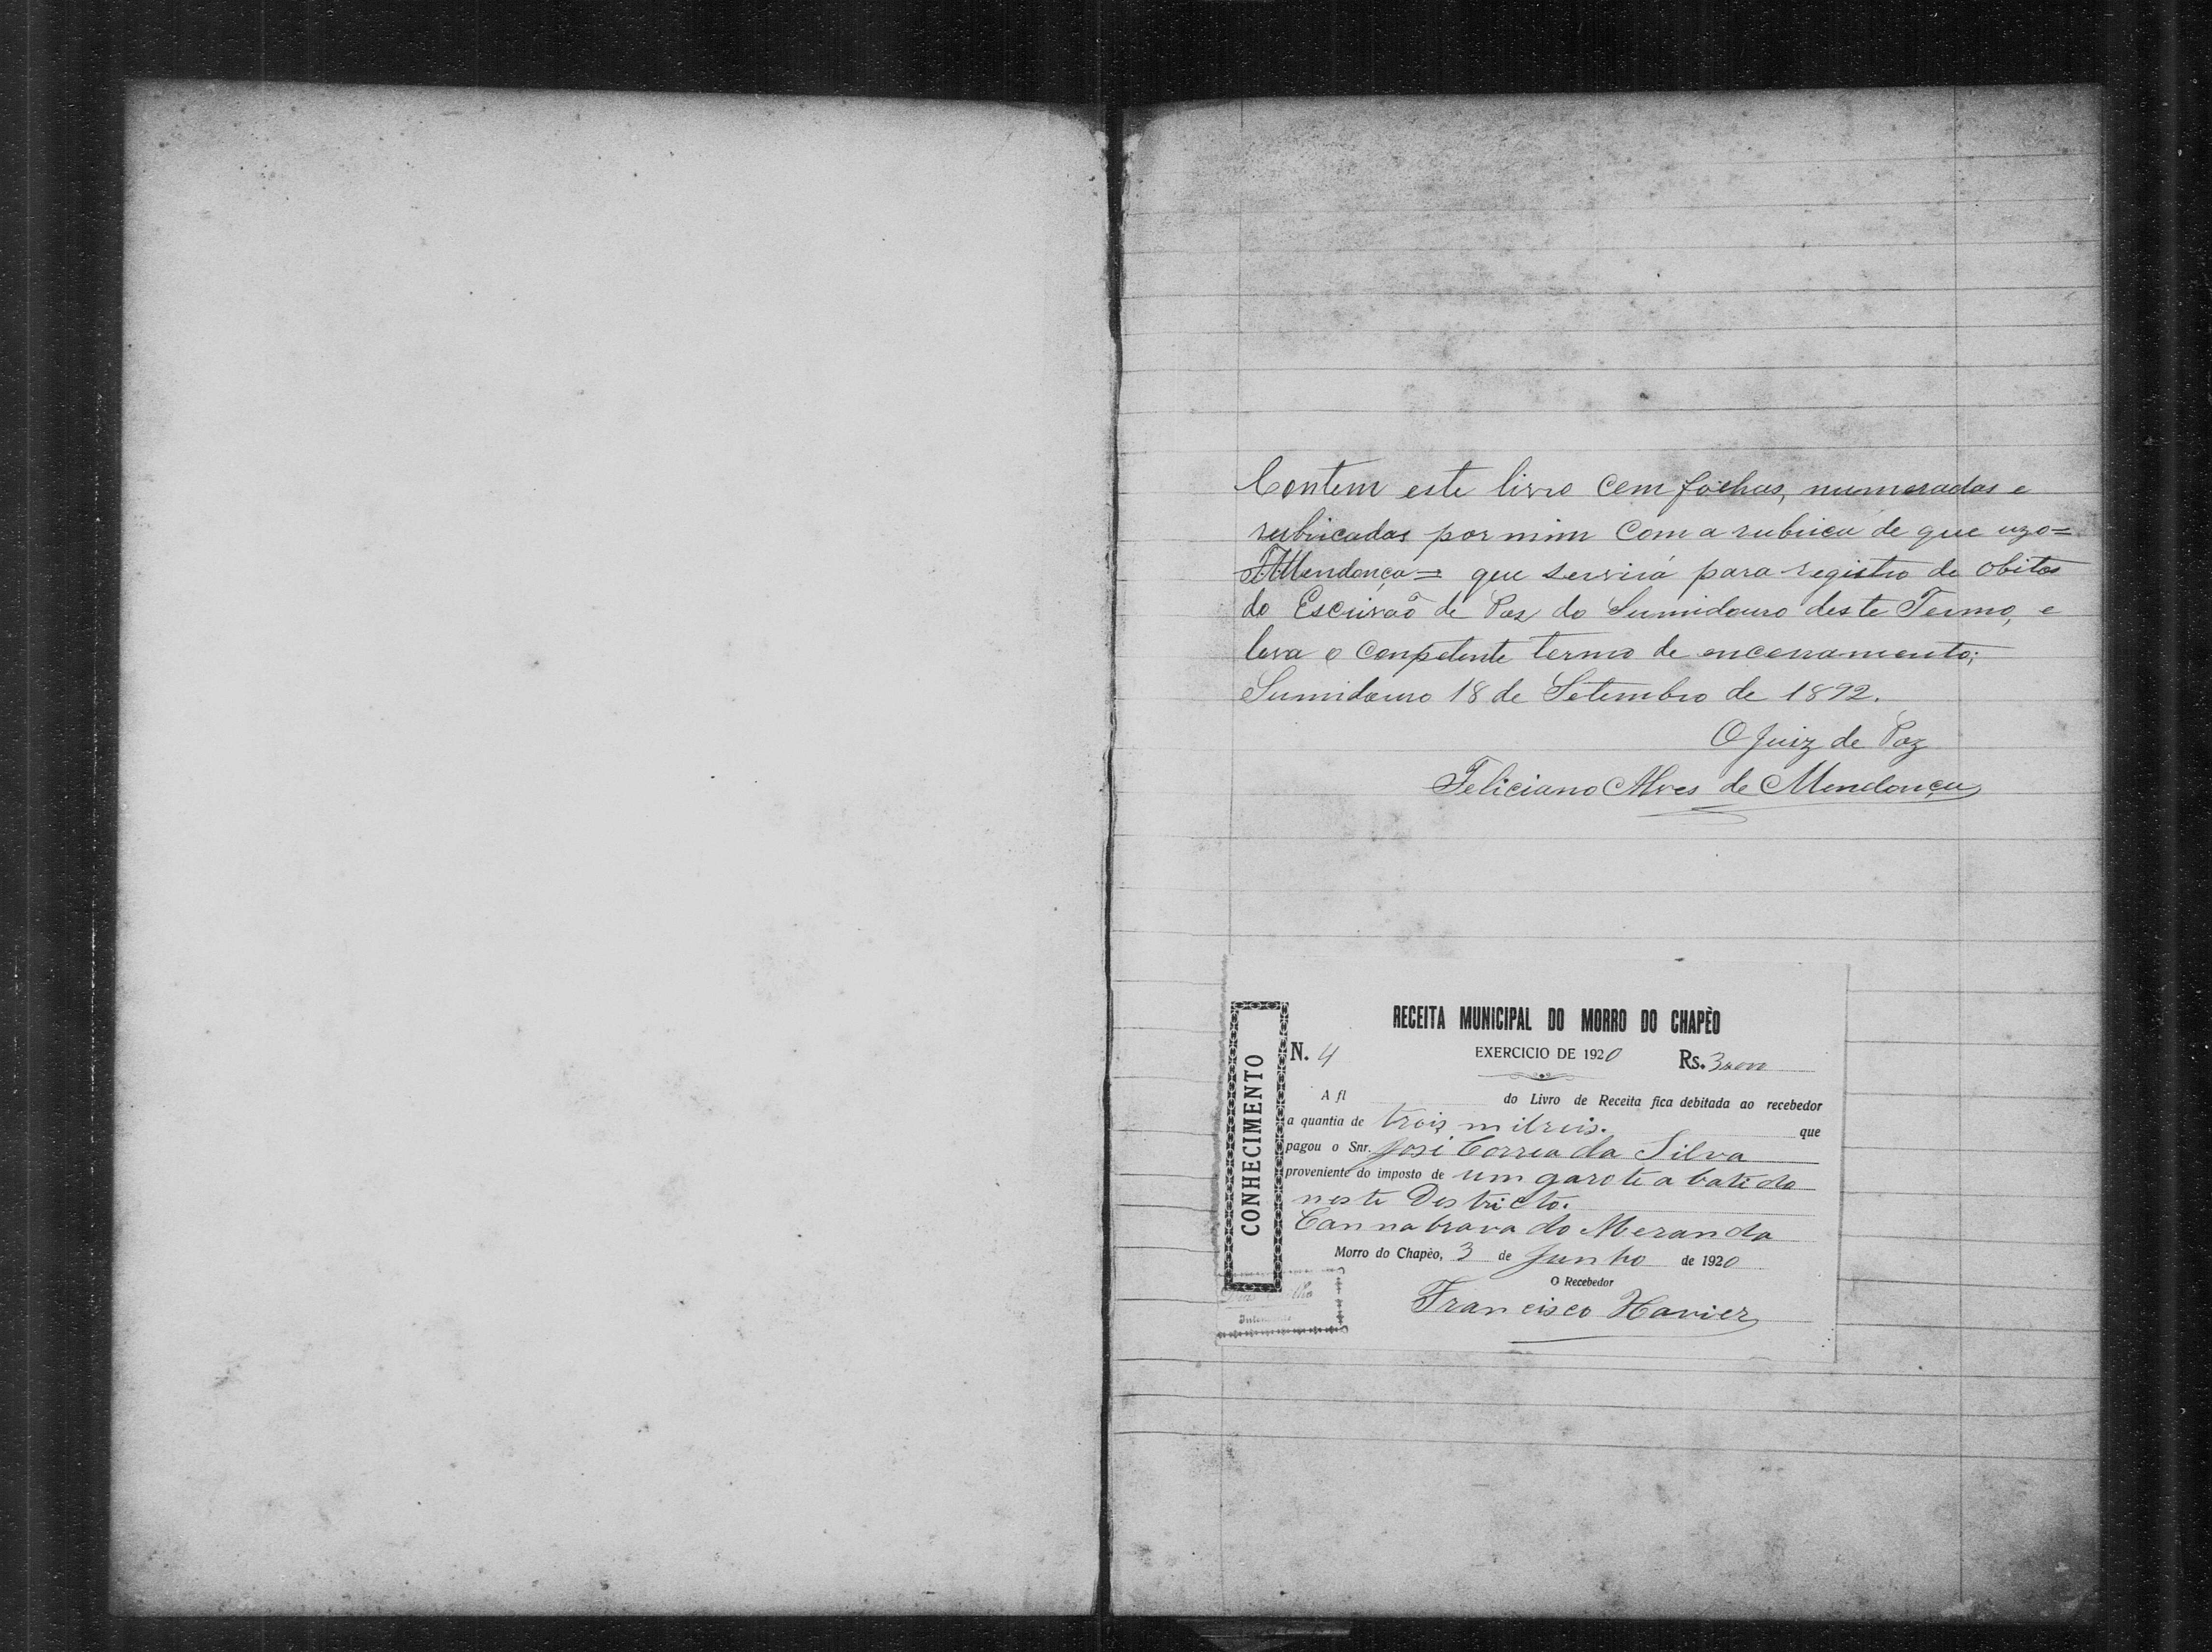 Contem este livro cem fôlhas, numeradas e
rubricadas por mim com a rubrica de que uzo=
FAMendonça= que servirá para registro de obitos
do Escrivaõ de Paz do Sumidouro deste Termo, e
leva o conpetente termo de encerramento;
Sumidouro 18 de Setembro de 1892.
O Juiz de Paz
Feliciano Alves de Mendonça
RECEITA MUNICIPAL DO MORRO DO CHAPÈO
CONHECIMENTO
N. 4 EXERCICIO DE 1920 Rs. 3$000
A fl do Livro de Receita fica debitada ao recebedor
a quantia de trois milreis. que
pagou o Snr. José Correa da Silva
proveniente do imposto de um garote abatido
neste Destricto.
Cannabrava do Meranda
Morro do Chapèo, 3 de Junho de 1920
O Recebedor
Francisco Xavier